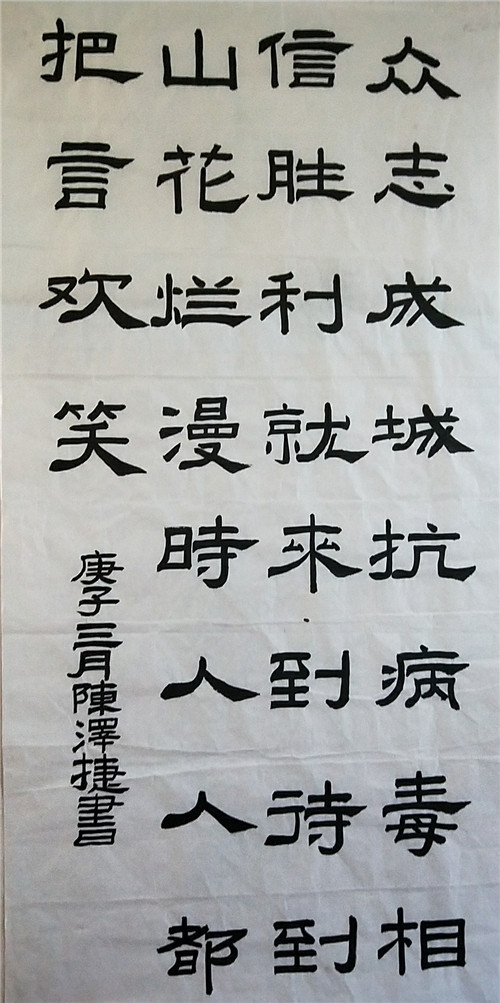 众志成城抗病毒相
信胜利就來到待到
山花烂漫時人人都
把言欢笑
庚子三月陳澤捷書